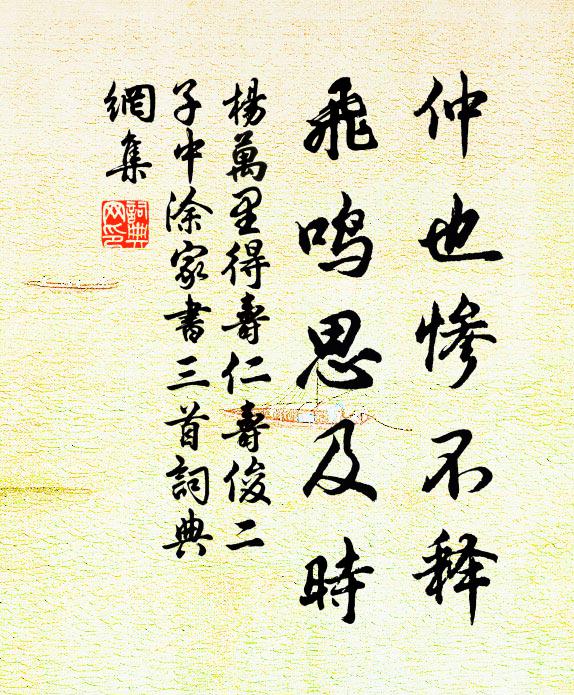 仲也慘不释
飛鳴思及時
楊萬里得壽仁壽俊二
子中涂家書三首詞典
網集
詞典网印